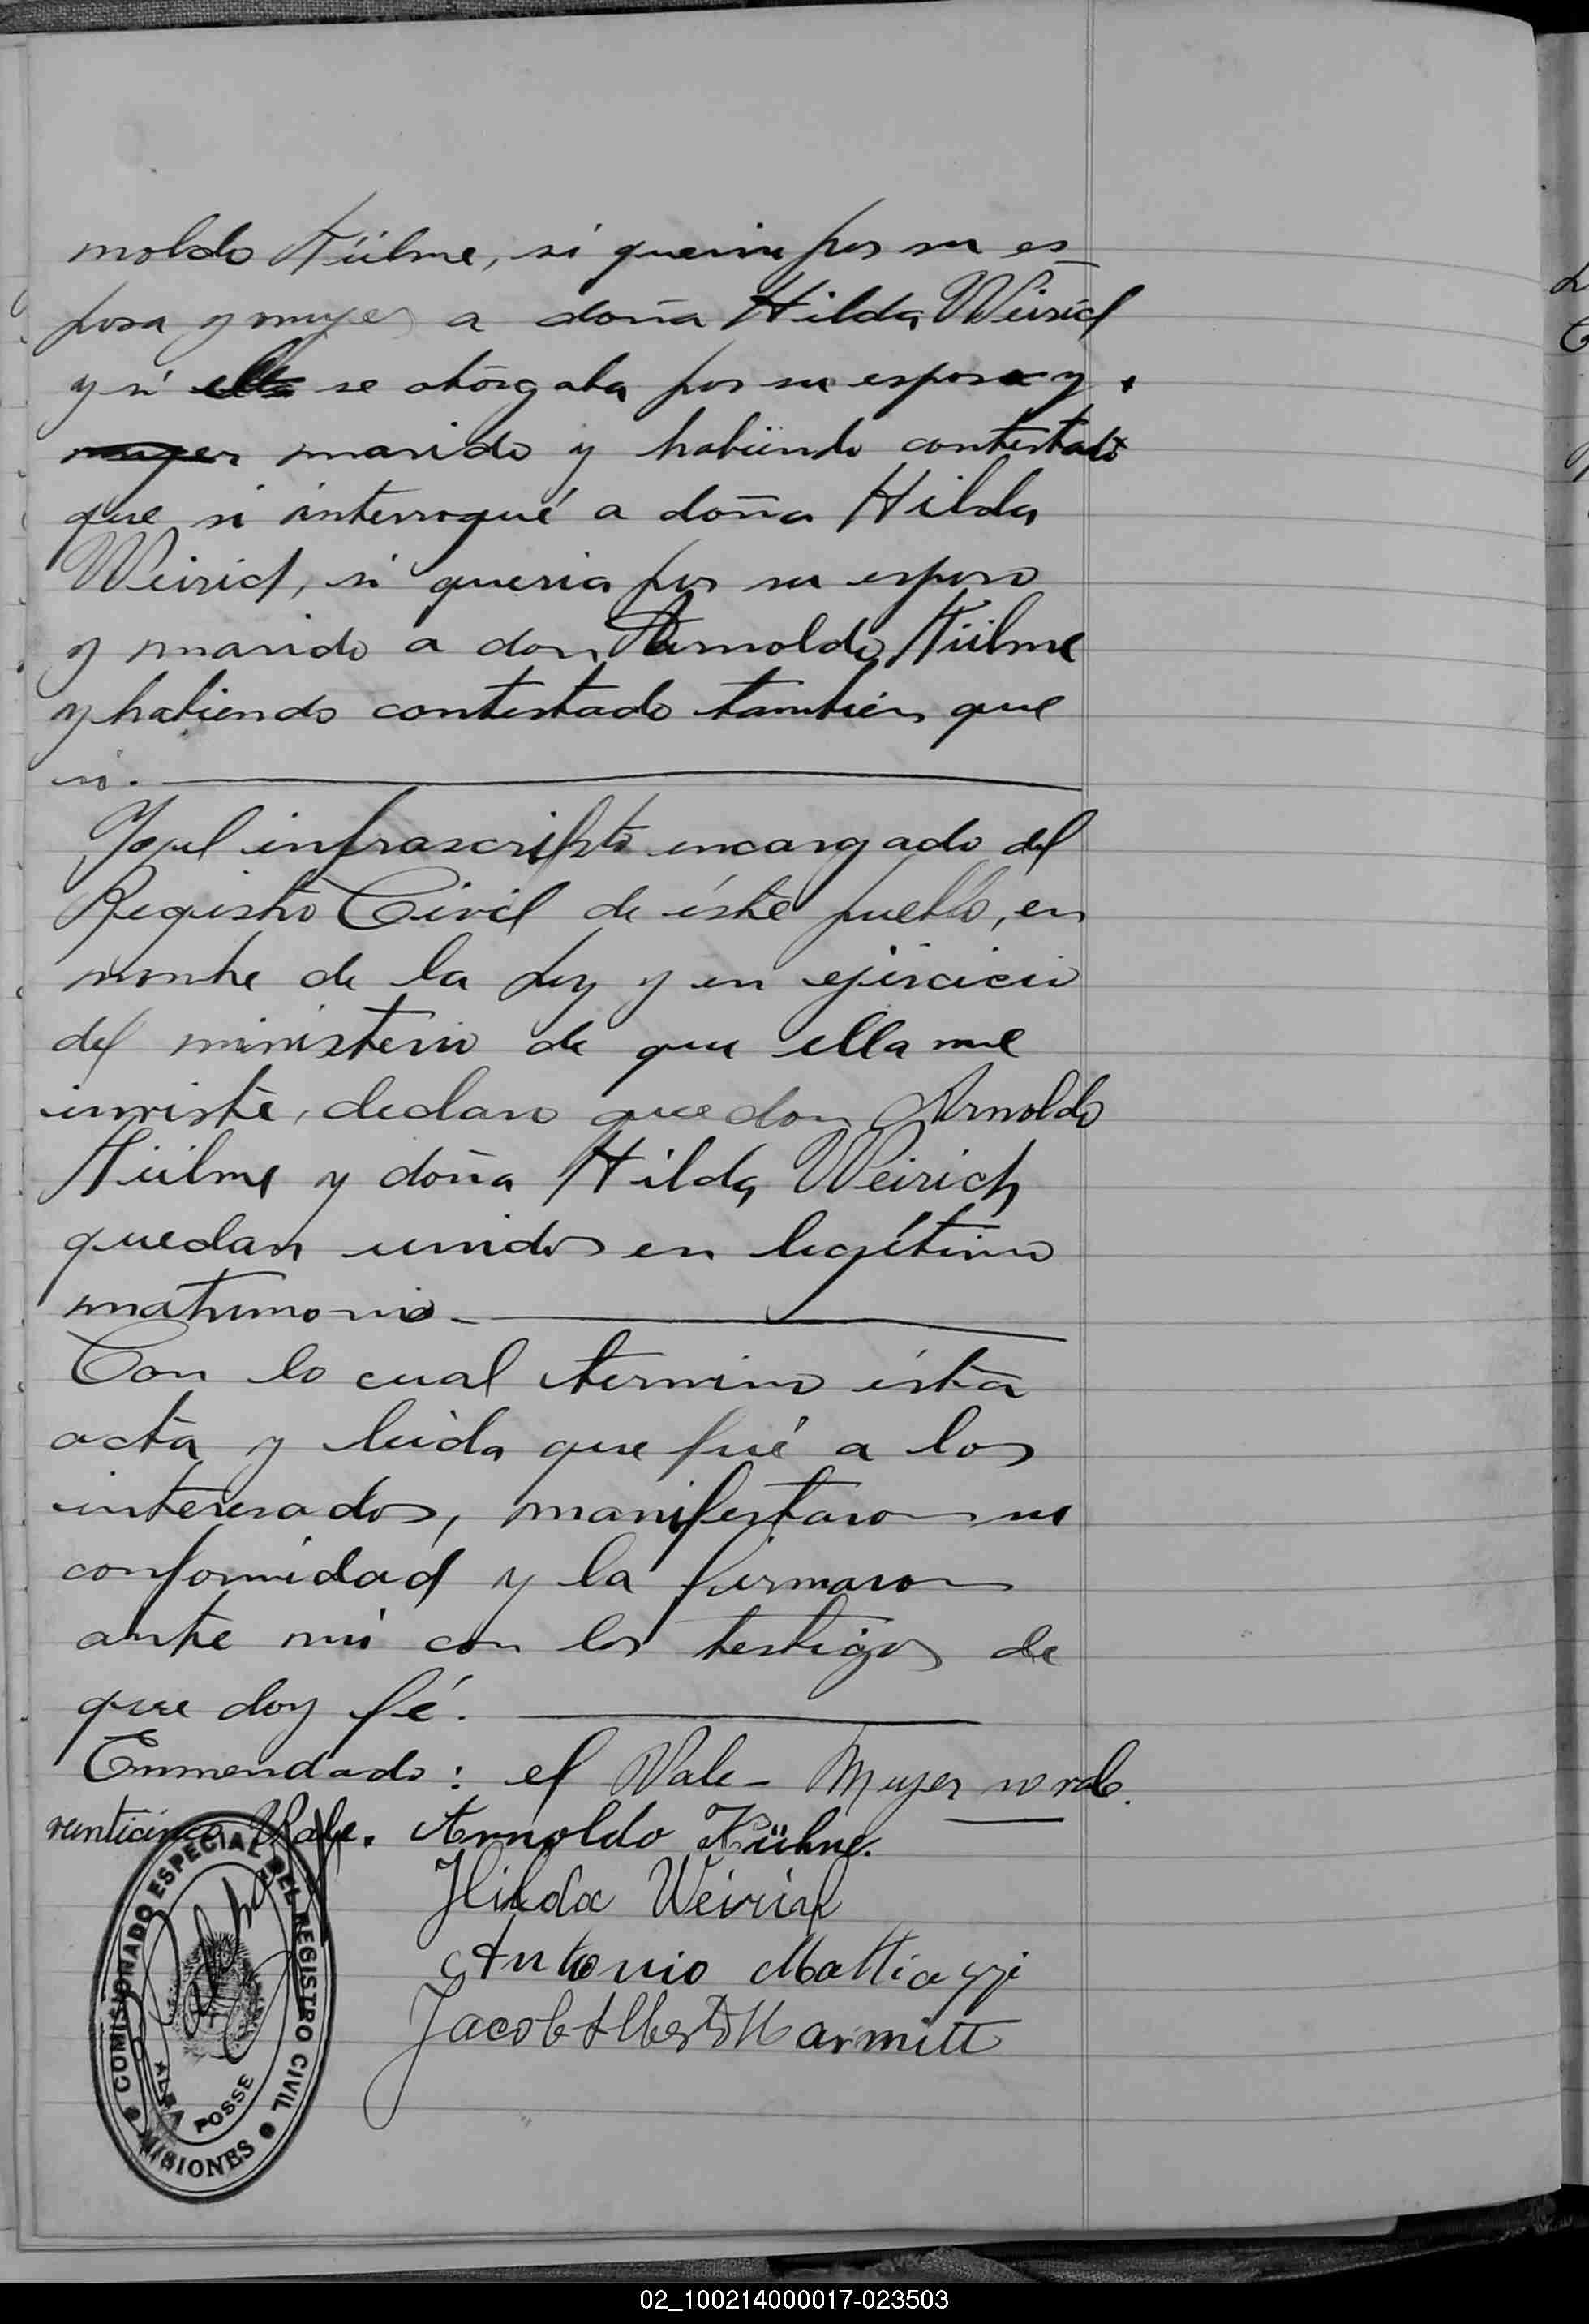 noldo Külme, si queria por su es_
posa y mujer a doña Hilda Weirich
y si se otorgaba por su esposo y
mujer marido y habiendo contestado
que si interrogué a doña Hilda
Weirich, si queria por su esposo
y marido a don Arnoldo Külme
y habiendo contestado tambien que
si.
Yo, el infrascripto encargado del
Registro Civil de éste pueblo, en
nombre de la Ley y en ejercicio
del ministerio de que ella me
inviste, declaro que don Arnoldo
Külme y doña Hilda Weirich
quedan unidos en legítimo
matrimonio.
Con lo cual termino ésta
acta y leida que fué a los
interesados, manifestaron su
conformidad y la firmaron
ante mi con los testigos de
que doy fé.
Enmendado: el Vale - Mujer no vale.
veinticinco Vale. Arnoldo Kühne.
Hilda Weirich
Antonio Mattiazzi
Jacob Alberto Marmitt
COMISIONADO ESPECIAL DEL REGISTRO CIVIL
ALBA POSSE
MISIONES
02_100214000017-023503